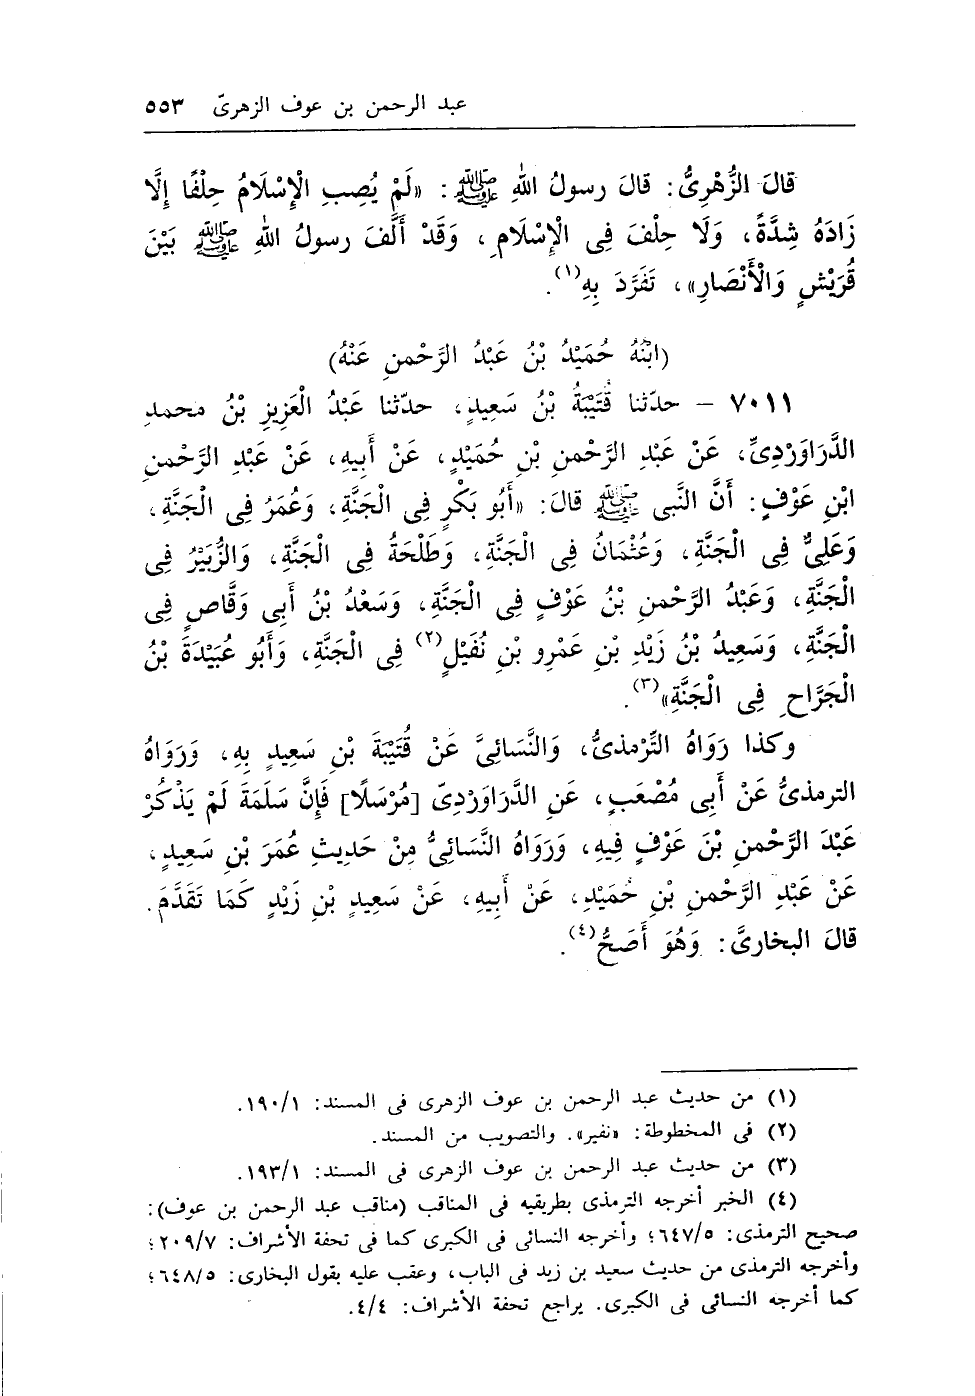 عبد الرحمن بن عوف الزهرىّ ٥٥٣
قالَ الزُّهْرِىُّ: قالَ رسولُ اللهِ ﷺ: «لَمْ يُصِبِ الْإِسْلَامُ حِلْفًا إِلَّا
زَادَهُ شِدَّةً، وَلَا حِلْفَ فِى الْإِسْلَامِ، وَقَدْ أَلَّفَ رسولُ اللهِ ﷺ بَيْنَ
قُرَيْشٍ وَالْأَنْصَارِ»، تَفَرَّدَ بِهِ(١).
(ابْنُهُ حُمَيْدُ بْنُ عَبْدُ الرَّحْمنِ عَنْهُ)
٧٠١١ – حدّثنا قُتَيْبَةُ بْنُ سَعِيدٍ، حدّثنا عَبْدُ الْعَزِيزِ بْنُ محمدٍ
الدَّرَاوَرْدِىِّ، عَنْ عَبْدِ الرَّحْمنِ بْنِ حُمَيْدٍ، عَنْ أَبِيهِ، عَنْ عَبْدِ الرَّحْمنِ
ابْنِ عَوْفٍ: أَنَّ النَّبى ﷺ قالَ: «أَبُو بَكْرٍ فِى الْجَنَّةِ، وَعُمَرُ فِى الْجَنَّةِ،
وَعَلِىٌّ فِى الْجَنَّةِ، وَعُثْمَانُ فِى الْجَنَّةِ، وَطَلْحَةُ فِى الْجَنَّةِ، وَالزُّبَيْرُ فِى
الْجَنَّةِ، وَعَبْدُ الرَّحْمنِ بْنُ عَوْفٍ فِى الْجَنَّةِ، وَسَعْدُ بْنُ أَبِى وَقَّاصٍ فِى
الْجَنَّةِ، وَسَعِيدُ بْنُ زَيْدِ بْنِ عَمْرِو بْنِ نُفَيْلٍ(٢) فِى الْجَنَّةِ، وَأَبُو عُبَيْدَةَ بْنُ
الْجَرَّاحِ فِى الْجَنَّةِ»(٣).
وكذا رَوَاهُ التِّرْمذىُّ، وَالنَّسَائِىَّ عَنْ قُتَيْبَةَ بْنِ سَعِيدٍ بِهِ، وَرَوَاهُ
الترمذىُّ عَنْ أَبِى مُصْعَبٍ، عَنِ الدَّرَاوَرْدِىّ [مُرْسَلًا] فَإِنَّ سَلَمَةَ لَمْ يَذْكُرْ
عَبْدَ الرَّحْمنِ بْنَ عَوْفٍ فِيهِ، وَرَوَاهُ النَّسَائِىُّ مِنْ حَدِيثِ عُمَرَ بْنِ سَعِيدٍ،
عَنْ عَبْدِ الرَّحْمنِ بْنِ حُمَيْدٍ، عَنْ أَبِيهِ، عَنْ سَعِيدٍ بْنِ زَيْدٍ كَمَا تَقَدَّمَ.
قالَ البخارىَّ: وَهُوَ أَصَحُّ(٤).
(١) من حديث عبد الرحمن بن عوف الزهرى فى المسند: ١/١٩٠.
(٢) فى المخطوطة: «نفير». والتصويب من المسند.
(٣) من حديث عبد الرحمن بن عوف الزهرى فى المسند: ١/١٩٣.
(٤) الخبر أخرجه الترمذى بطريقيه فى المناقب (مناقب عبد الرحمن بن عوف):
صحيح الترمذى: ٥/٦٤٧؛ وأخرجه النسائى فى الكبرى كما فى تحفة الأشراف: ٧/٢٠٩؛
وأخرجه الترمذى من حديث سعيد بن زيد فى الباب، وعقب عليه بقول البخارى: ٥/٦٤٨؛
كما أخرجه النسائى فى الكبرى. يراجع تحفة الأشراف: ٤/٤.